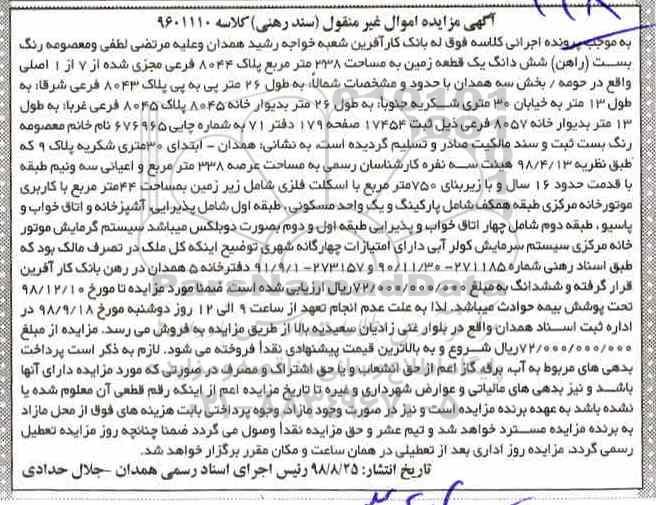 آگهی مزایده اموال غیر منقول (سند رهنی) کلاسه ۹۶۰۱۱۱۰
به موجب پرونده اجرائی کلاسه فوق له بانک کارآفرین شعبه خواجه رشید همدان وعلیه مرتضی لطفی ومعصومه رنگ
بست (راهن) شش دانگ یک قطعه زمین به مساحت ۳۳۸ متر مربع پلاک ۸۰۴۴ فرعی مجزی شده از ۷ از ۱ اصلی
واقع در حومه / بخش سه همدان با حدود و مشخصات شمالاً: به طول ۲۶ متر پی به پی پلاک ۸۰۴۳ فرعی شرقا: به
طول ۱۳ متر به خیابان ۳۰ متری شکریه جنوباً: به طول ۲۶ متر بدیوار خانه ۸۰۴۵ پلاک ۸۰۴۵ فرعی غربا: به طول
۱۳ متر بدیوار خانه ۸۰۵۷ فرعی ذیل ثبت ۱۷۴۵۴ صفحه ۱۷۹ دفتر ۷۱ به شماره چاپی ۶۷۶۹۶۵ نام خانم معصومه
رنگ بست ثبت و سند مالکیت صادر و تسلیم گردیده است. به نشانی: همدان - ابتدای ۳۰متری شکریه پلاک ۹ که
طبق نظریه ۹۸/۴/۱۳ هیئت سه نفره کارشناسان رسمی به مساحت عرصه ۳۳۸ متر مربع و اعیانی سه ونیم طبقه
با قدمت حدود ۱۶ سال و با زیربنای ۷۵۰متر مربع با اسکلت فلزی شامل زیر زمین بمساحت ۴۴متر مربع با کاربری
موتورخانه مرکزی طبقه همکف شامل پارکینگ و یک واحد مسکونی، طبقه اول شامل پذیرایی، آشپزخانه و اتاق خواب و
پاسیو، طبقه دوم شامل چهار اتاق خواب و پذیرایی طبقه اول و دوم بصورت دوبلکس میباشد سیستم گرمایش موتور
خانه مرکزی سیستم سرمایش کولر آبی دارای امتیازات چهارگانه شهری توضیح اینکه کل ملک در تصرف مالک بود که
طبق اسناد رهنی شماره ۲۷۱۱۸۵- ۹۰/۱۱/۳۰ و ۲۷۳۱۵۷- ۹۱/۹/۱ دفترخانه ۵ همدان در رهن بانک کار آفرین
قرار گرفته و ششدانگ به مبلغ ۷۲/۰۰۰/۰۰۰/۰۰۰ریال ارزیابی شده است ضمنا مورد مزایده تا مورخ ۹۸/۱۲/۱۰
تحت پوشش بیمه حوادث میباشد. لذا به علت عدم انجام تعهد از ساعت ۹ الی ۱۲ روز دوشنبه مورخ ۹۸/۹/۱۸ در
اداره ثبت اسناد همدان واقع در بلوار غنی زادیان سعیدیه بالا از طریق مزایده به فروش می رسد. مزایده از مبلغ
۷۲/۰۰۰/۰۰۰/۰۰۰ریال شروع و به بالاترین قیمت پیشنهادی نقداً فروخته می شود. لازم به ذکر است پرداخت
بدهی های مربوط به آب، برق، گاز اعم از حق انشعاب و یا حق اشتراک و مصرف در صورتی که مورد مزایده دارای آنها
باشد و نیز بدهی های مالیاتی و عوارض شهرداری و غیره تا تاریخ مزایده اعم از اینکه رقم قطعی آن معلوم شده یا
نشده باشد به عهده برنده مزایده است و نیز در صورت وجود مازاد وجوه پرداختی بابت هزینه های فوق از محل مازاد
به برنده مزایده مسترد خواهد شد و نیم عشر و حق مزایده نقداً وصول می گردد ضمنا چنانچه روز مزایده تعطیل
رسمی گردد، مزایده روز اداری بعد از تعطیلی در همان ساعت و مکان مقرر برگزار خواهد شد.
تاریخ انتشار: ۹۸/۸/۲۵ رئیس اجرای اسناد رسمی همدان -جلال حدادی